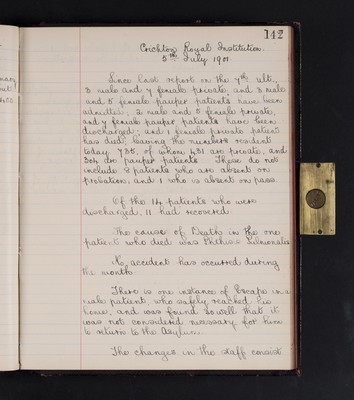 142
Crichton Royal Institution.
5th July 1901
Since last report on the 7th ult.,
3 male and 7 female private, and 3 male
and 5 female pauper patients, have been
admitted; 2 male and 5 female private,
and 7 female pauper patients have been
discharged; and 1 female private patient
has died, leaving the numbers resident
today 735, of whom 431 are private, and
304 are pauper patients. These do not
include 8 patients who are absent on
probation, and 1 who is absent on pass.
Of the 14 patients who were
discharged, 11 had recovered.
The cause of Death in the one
patient who died was Phthisis Pulmonalis
No accident has occurred during
the month.
There is one instance of Escape in a
male patient, who safely reached his
home, and was found so well that it
was not considered necessary for him
to return to the Asylum.
The changes in the staff consist